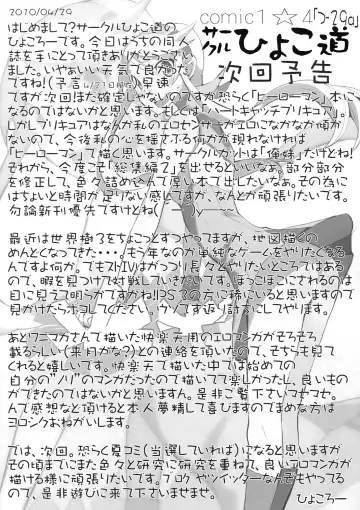 2010/04/29
comic1☆4「つ-29a」
サークル ひょこ道
次回予告
はじめまして?サークルひょこ道の
ひょころーです。今日はうちの同人
誌を手にとって頂きありがとうござい
ました。いやぁいい天気で良かった
ですね!(予言 4/21日現在)早速
ですが次回はまだ確定じゃないのですが恐らく「ヒーローマン」本に
なるのではないかと思います。もしくは「ハートキャッチプリキュア」。
しかしプリキュアはなんか私のエロセンサーがエロになかなか傾か
ないので、今後私の心を揺さぶる何かが現れなければ
「ヒーローマン」で描く思います。サークルカットは「俺妹」だけどね!
それから、今度こそ「総集編2」を出せるといいなぁ。部分部分
を修正して、色々詰め込んで厚い本で出したいなぁ。その為に
はちょいと時間が足りない感じですが、なんとか頑張りたいです。
勿論新刊優先ですけどね
最近は世界樹3をちょこっとずつやってますが、地図描くの
めんどくなってきた・・・。もう年なのか単純なゲームをやりたくなる
んですよ何か。でもストIVはがっつり長々とやりたいところではある
ので、暇を見つけて対戦していきたいです。ぼっこぼこにされるのは
目に見えて明らかですがね!PS3の方に稀にいると思いますので
見かけたらボコしてください。ウメハラさす返り討ちにしてやります。
あとワニマガさんで描いた快楽天用のエロマンガがそろそろ
載るらしい(来月かな?)との連絡を頂いたので、そちらも見て
くれると嬉しいです。快楽天で描いた中では始めての
自分の"ノリ"のマンガだったので描いてて楽しかったし、良いもの
ができたのではないかと思います。是非ご覧下さいマセマセ。
んで感想など頂けると本人夢精して喜びますのでまめな方は
ヨロシクおねがいします。
では、次回。恐らく夏コミ(当選していれば)になると思いますが
その頃までにまた色々と研究に研究を重ねて、良いエロマンガが
描ける様に頑張りたいです。ブログやツイッターなんぞもやってる
ので、是非遊びに来て下さいです。
ひょころー